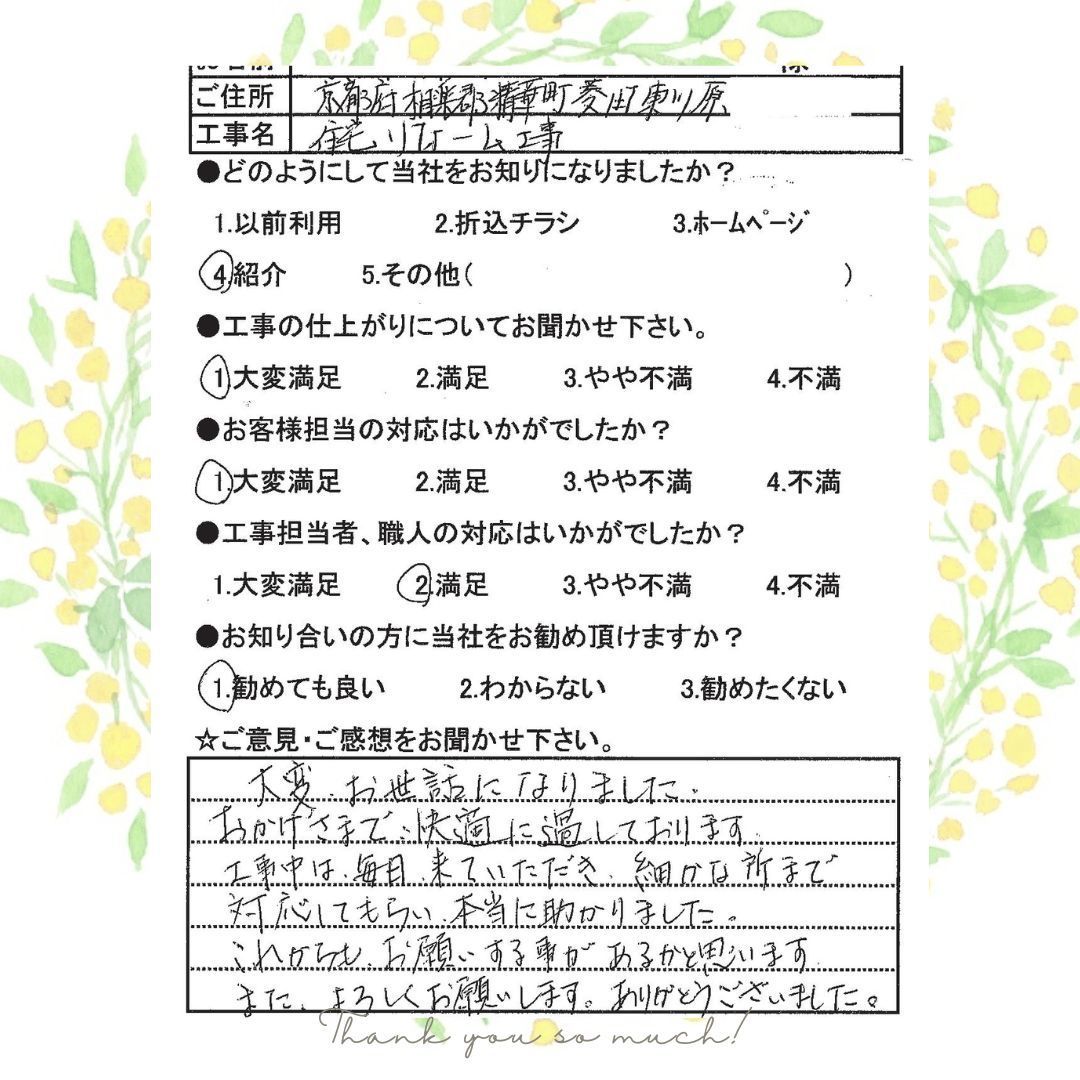 お名前 様
ご住所 京都府相楽郡精華町菱田東川原
工事名 住宅リフォーム工事
●どのようにして当社をお知りになりましたか？
1.以前利用 2.折込チラシ 3.ホームページ
4.紹介 5.その他( )
●工事の仕上がりについてお聞かせ下さい。
1.大変満足 2.満足 3.やや不満 4.不満
●お客様担当の対応はいかがでしたか？
1.大変満足 2.満足 3.やや不満 4.不満
●工事担当者、職人の対応はいかがでしたか？
1.大変満足 2.満足 3.やや不満 4.不満
●お知り合いの方に当社をお勧め頂けますか？
1.勧めても良い 2.わからない 3.勧めたくない
☆ご意見・ご感想をお聞かせ下さい。
大変、お世話になりました。
おかげさまで、快適に過しております。
工事中は、毎日、来ていただき、細かな所まで
対応してもらい、本当に助かりました。
これからも、お願いする事があるかと思います
また、よろしくお願いします。ありがとうございました。
Thank you so much!